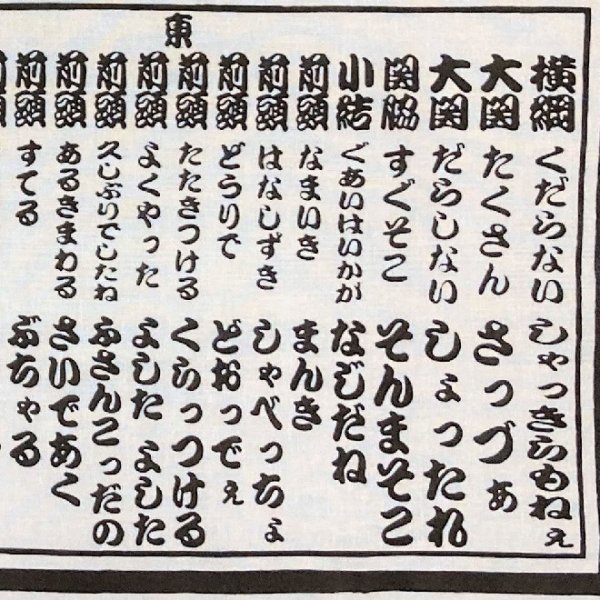 東
横綱 くだらない しゃっきらもねぇ
大関 たくさん さっづぁ
大関 だらしない しょったれ
関脇 すぐそこ そんまそこ
小結 ぐあいはいかが なじだね
前頭 なまいき まんき
前頭 はなしずき しゃべっちょ
前頭 どうりで どおっでぇ
前頭 たたきつける くらっつける
前頭 よくやった よした よした
前頭 久しぶりでしたね ふさんこっだの
前頭 あるきまわる さいであく
前頭 すてる ぶちゃる